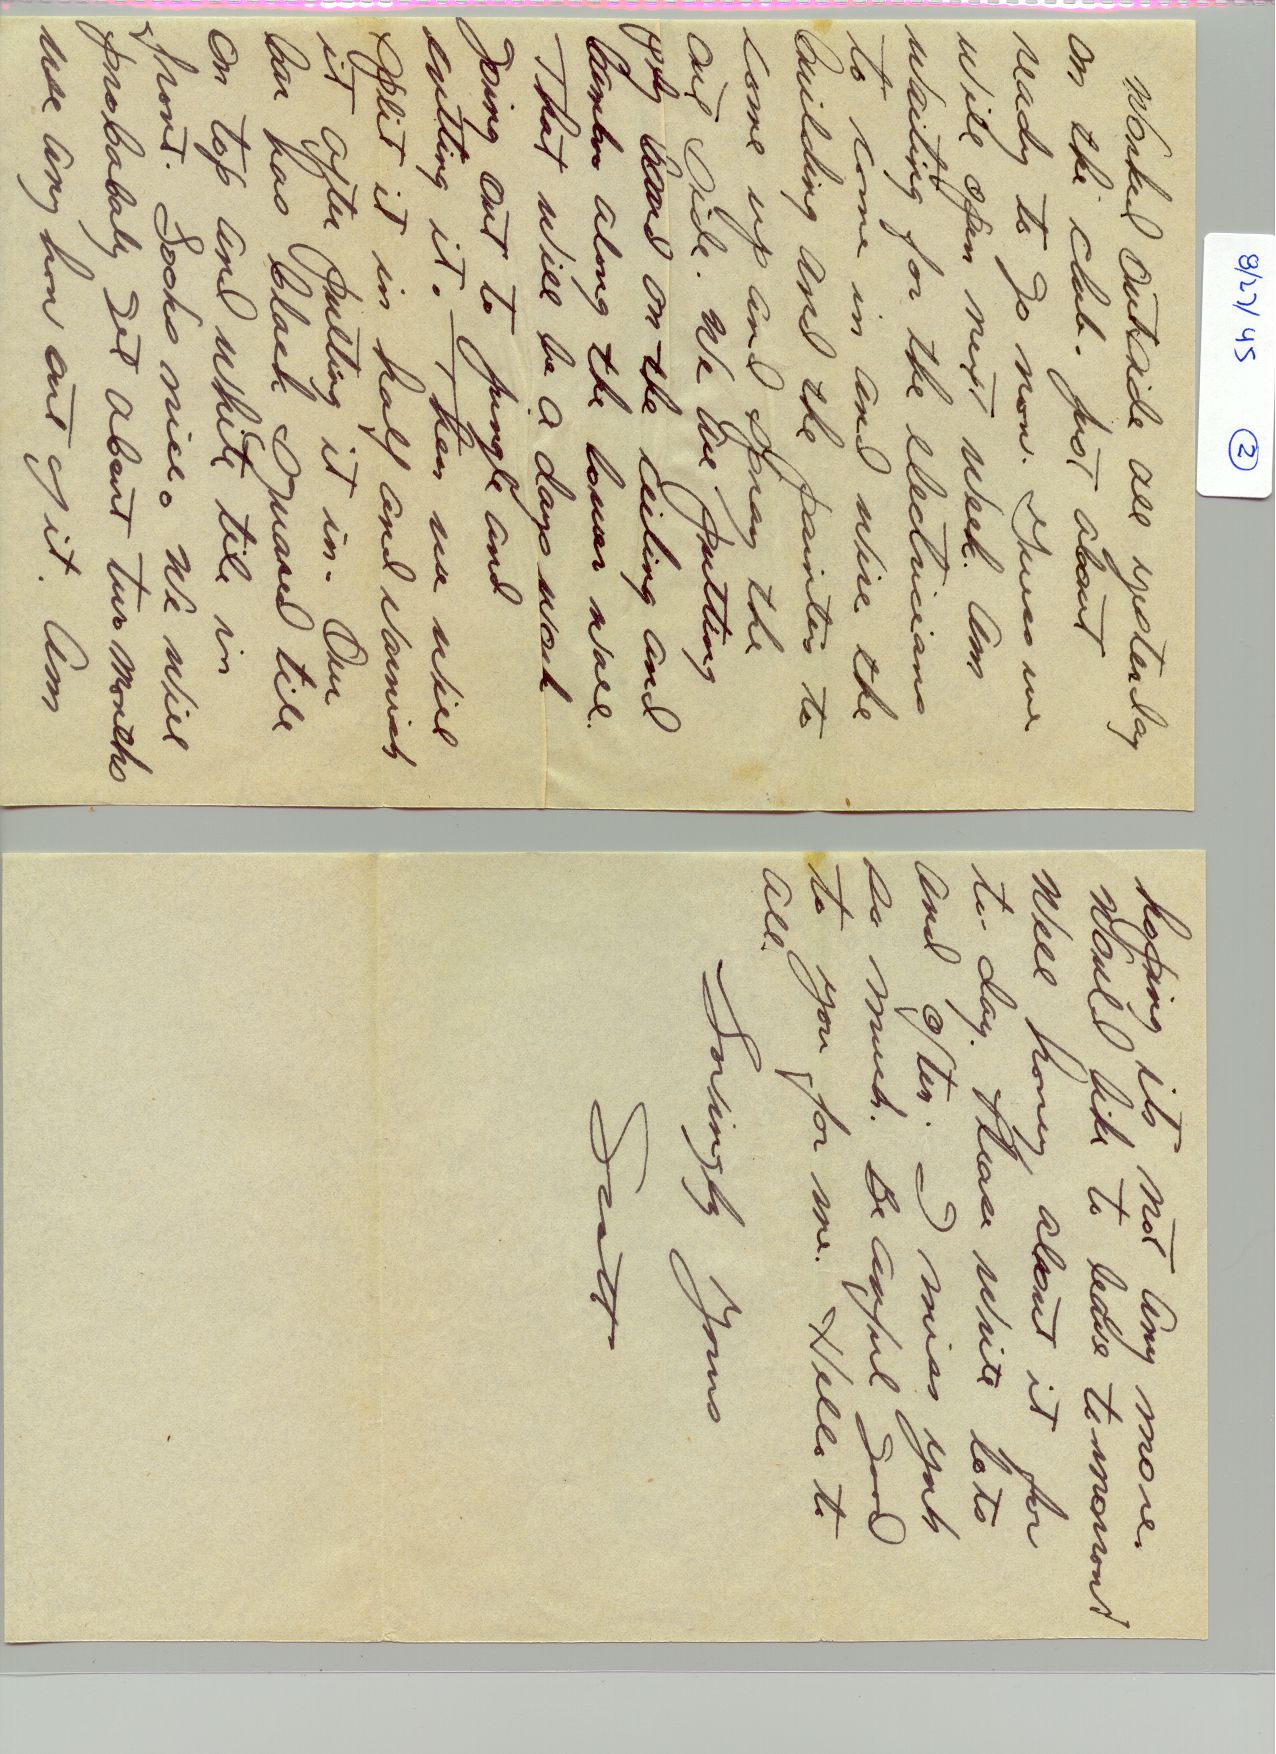 8/27/45 2
Worked outside all yesterday
on the club. Just about
ready to go now. Guess we
will open next week. Am
waiting for the electricians
to come in and wire the
building and the painters to
come up and spray the
out side. We are putting
ply board on the ceiling and
bamboo along the lower wall.
That will be a days work
going out to jungle and
cutting it. Then we will
split it in half and varnish
it after putting it in. Our
bar has black squared tile
on top and white tile in
front. Looks nice. We will
probabaly get about two months
use any how out of it. Am
hoping its not any more.
Would like to leave tomorrow
Well honey about it for
to-day. Please write lots
and often. I miss you
so much. Be awful good
to you for me. Hello to
all.
Lovingly Yours
Scott